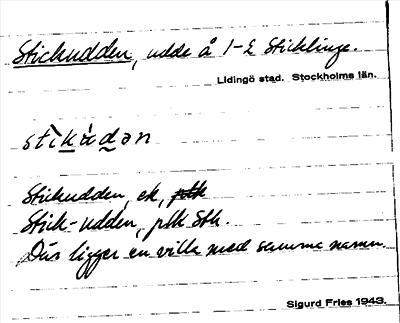 Stickudden, udde å 1-2 Sticklinge.
Lidingö stad. Stockholms län.
stìkùdən
Stickudden, ek,
Stick-udden, plk Sth.
Där ligger en villa med samma namn.
Sigurd Fries 1943.